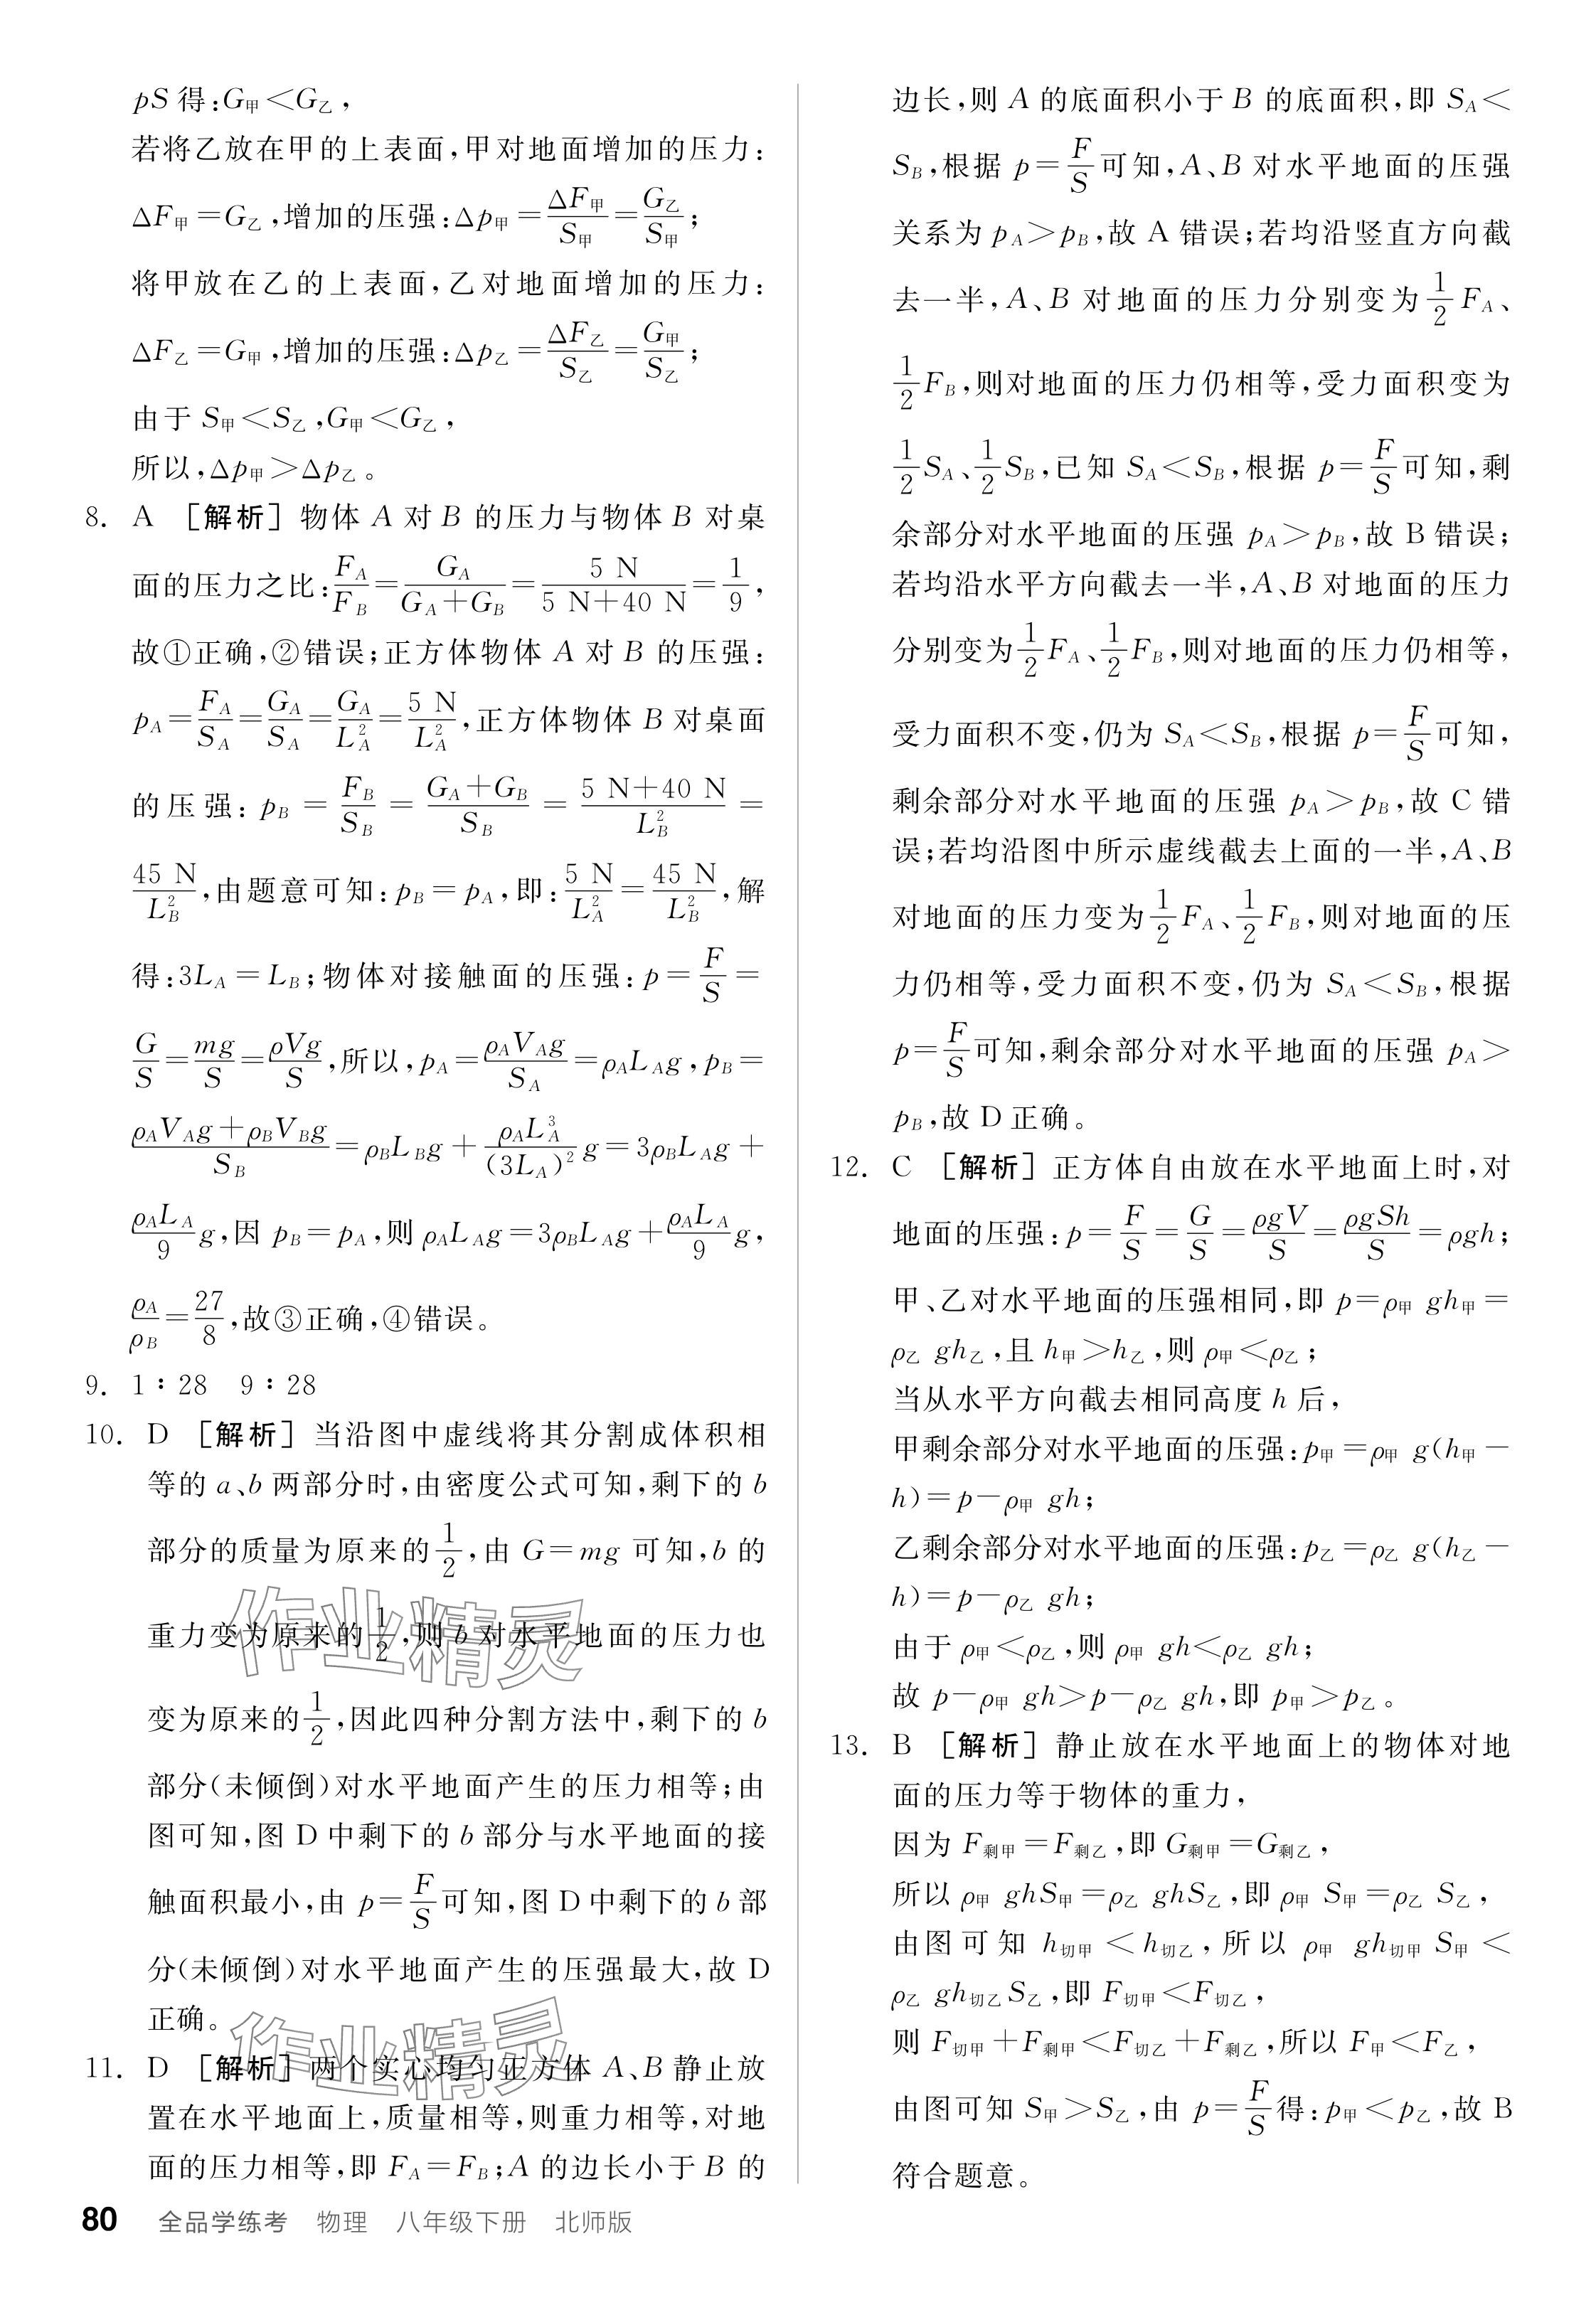 pS 得:G甲＜G乙,
若将乙放在甲的上表面,甲对地面增加的压力:
ΔF甲=G乙,增加的压强:Δp甲=ΔF甲/S甲=G乙/S甲;
将甲放在乙的上表面,乙对地面增加的压力:
ΔF乙=G甲,增加的压强:Δp乙=ΔF乙/S乙=G甲/S乙;
由于 S甲＜S乙,G甲＜G乙,
所以,Δp甲＞Δp乙。
8. A [解析] 物体 A 对 B 的压力与物体 B 对桌
面的压力之比:F_A/F_B=G_A/(G_A+G_B)=5 N/(5 N+40 N)=1/9,
故①正确,②错误;正方体物体 A 对 B 的压强:
p_A=F_A/S_A=G_A/S_A=G_A/L_A²=5 N/L_A²,正方体物体 B 对桌面
的压强:p_B=F_B/S_B=(G_A+G_B)/S_B=(5 N+40 N)/L_B²=
45 N/L_B²,由题意可知:p_B=p_A,即:5 N/L_A²=45 N/L_B²,解
得:3L_A=L_B;物体对接触面的压强:p=F/S=
G/S=mg/S=ρVg/S,所以,p_A=ρ_AV_Ag/S_A=ρ_AL_Ag,p_B=
(ρ_AV_Ag+ρ_BV_Bg)/S_B=ρ_BL_Bg+ρ_AL_A³/(3L_A)² g=3ρ_BL_Ag+
ρ_AL_A/9 g,因 p_B=p_A,则 ρ_AL_Ag=3ρ_BL_Ag+ρ_AL_A/9 g,
ρ_A/ρ_B=27/8,故③正确,④错误。
9. 1∶28 9∶28
10. D [解析] 当沿图中虚线将其分割成体积相
等的 a、b 两部分时,由密度公式可知,剩下的 b
部分的质量为原来的1/2,由 G=mg 可知,b 的
重力变为原来的1/2,则 b 对水平地面的压力也
变为原来的1/2,因此四种分割方法中,剩下的 b
部分(未倾倒)对水平地面产生的压力相等;由
图可知,图 D 中剩下的 b 部分与水平地面的接
触面积最小,由 p=F/S可知,图 D 中剩下的 b 部
分(未倾倒)对水平地面产生的压强最大,故 D
正确。
11. D [解析] 两个实心均匀正方体 A、B 静止放
置在水平地面上,质量相等,则重力相等,对地
面的压力相等,即 F_A=F_B;A 的边长小于 B 的
边长,则 A 的底面积小于 B 的底面积,即 S_A＜
S_B,根据 p=F/S可知,A、B 对水平地面的压强
关系为 p_A＞p_B,故 A 错误;若均沿竖直方向截
去一半,A、B 对地面的压力分别变为1/2 F_A、
1/2 F_B,则对地面的压力仍相等,受力面积变为
1/2 S_A、1/2 S_B,已知 S_A＜S_B,根据 p=F/S可知,剩
余部分对水平地面的压强 p_A＞p_B,故 B 错误;
若均沿水平方向截去一半,A、B 对地面的压力
分别变为1/2 F_A、1/2 F_B,则对地面的压力仍相等,
受力面积不变,仍为 S_A＜S_B,根据 p=F/S可知,
剩余部分对水平地面的压强 p_A＞p_B,故 C 错
误;若均沿图中所示虚线截去上面的一半,A、B
对地面的压力变为1/2 F_A、1/2 F_B,则对地面的压
力仍相等,受力面积不变,仍为 S_A＜S_B,根据
p=F/S可知,剩余部分对水平地面的压强 p_A＞
p_B,故 D 正确。
12. C [解析] 正方体自由放在水平地面上时,对
地面的压强:p=F/S=G/S=ρgV/S=ρgSh/S=ρgh;
甲、乙对水平地面的压强相同,即 p=ρ甲 gh甲=
ρ乙 gh乙,且 h甲＞h乙,则 ρ甲＜ρ乙;
当从水平方向截去相同高度 h 后,
甲剩余部分对水平地面的压强:p甲=ρ甲 g(h甲－
h)=p－ρ甲 gh;
乙剩余部分对水平地面的压强:p乙=ρ乙 g(h乙－
h)=p－ρ乙 gh;
由于 ρ甲＜ρ乙,则 ρ甲 gh＜ρ乙 gh;
故 p－ρ甲 gh＞p－ρ乙 gh,即 p甲＞p乙。
13. B [解析] 静止放在水平地面上的物体对地
面的压力等于物体的重力,
因为 F剩甲=F剩乙,即 G剩甲=G剩乙,
所以 ρ甲 ghS甲=ρ乙 ghS乙,即 ρ甲 S甲=ρ乙 S乙,
由图可知 h切甲＜h切乙,所以 ρ甲 gh切甲S甲＜
ρ乙 gh切乙S乙,即 F切甲＜F切乙,
则 F切甲+F剩甲＜F切乙+F剩乙,所以 F甲＜F乙,
由图可知 S甲＞S乙,由 p=F/S得:p甲＜p乙,故 B
符合题意。
作业精灵
作业精灵
80 全品学练考 物理 八年级下册 北师版